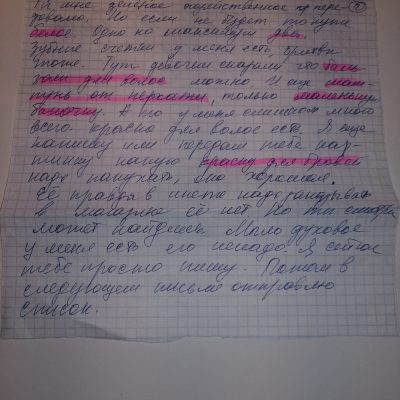 Ты мне дешёвое хозяйственное пр пере-
давала. Но если не будет то купи
белое. Одно но максимум два.
Зубные щётки у меня есть, бритвы
тоже. Тут девочки сказали что баль
зам для волос можно И ещё шам-
пунь от перхоти, только маленькую
баночку. А то у меня слишком много
всего краска для волос есть Я ещё
напишу или передам тебе кар-
тинку какую краску для бровей
надо покупать, она хорошая.
Её правда в инете надо заказывать
в магазине её нет Но ты смотри
может найдёшь. Мыло духовое
у меня есть его ненадо. Я сейчас
тебе просто пишу. Потом в
следующем письме отправлю
список.